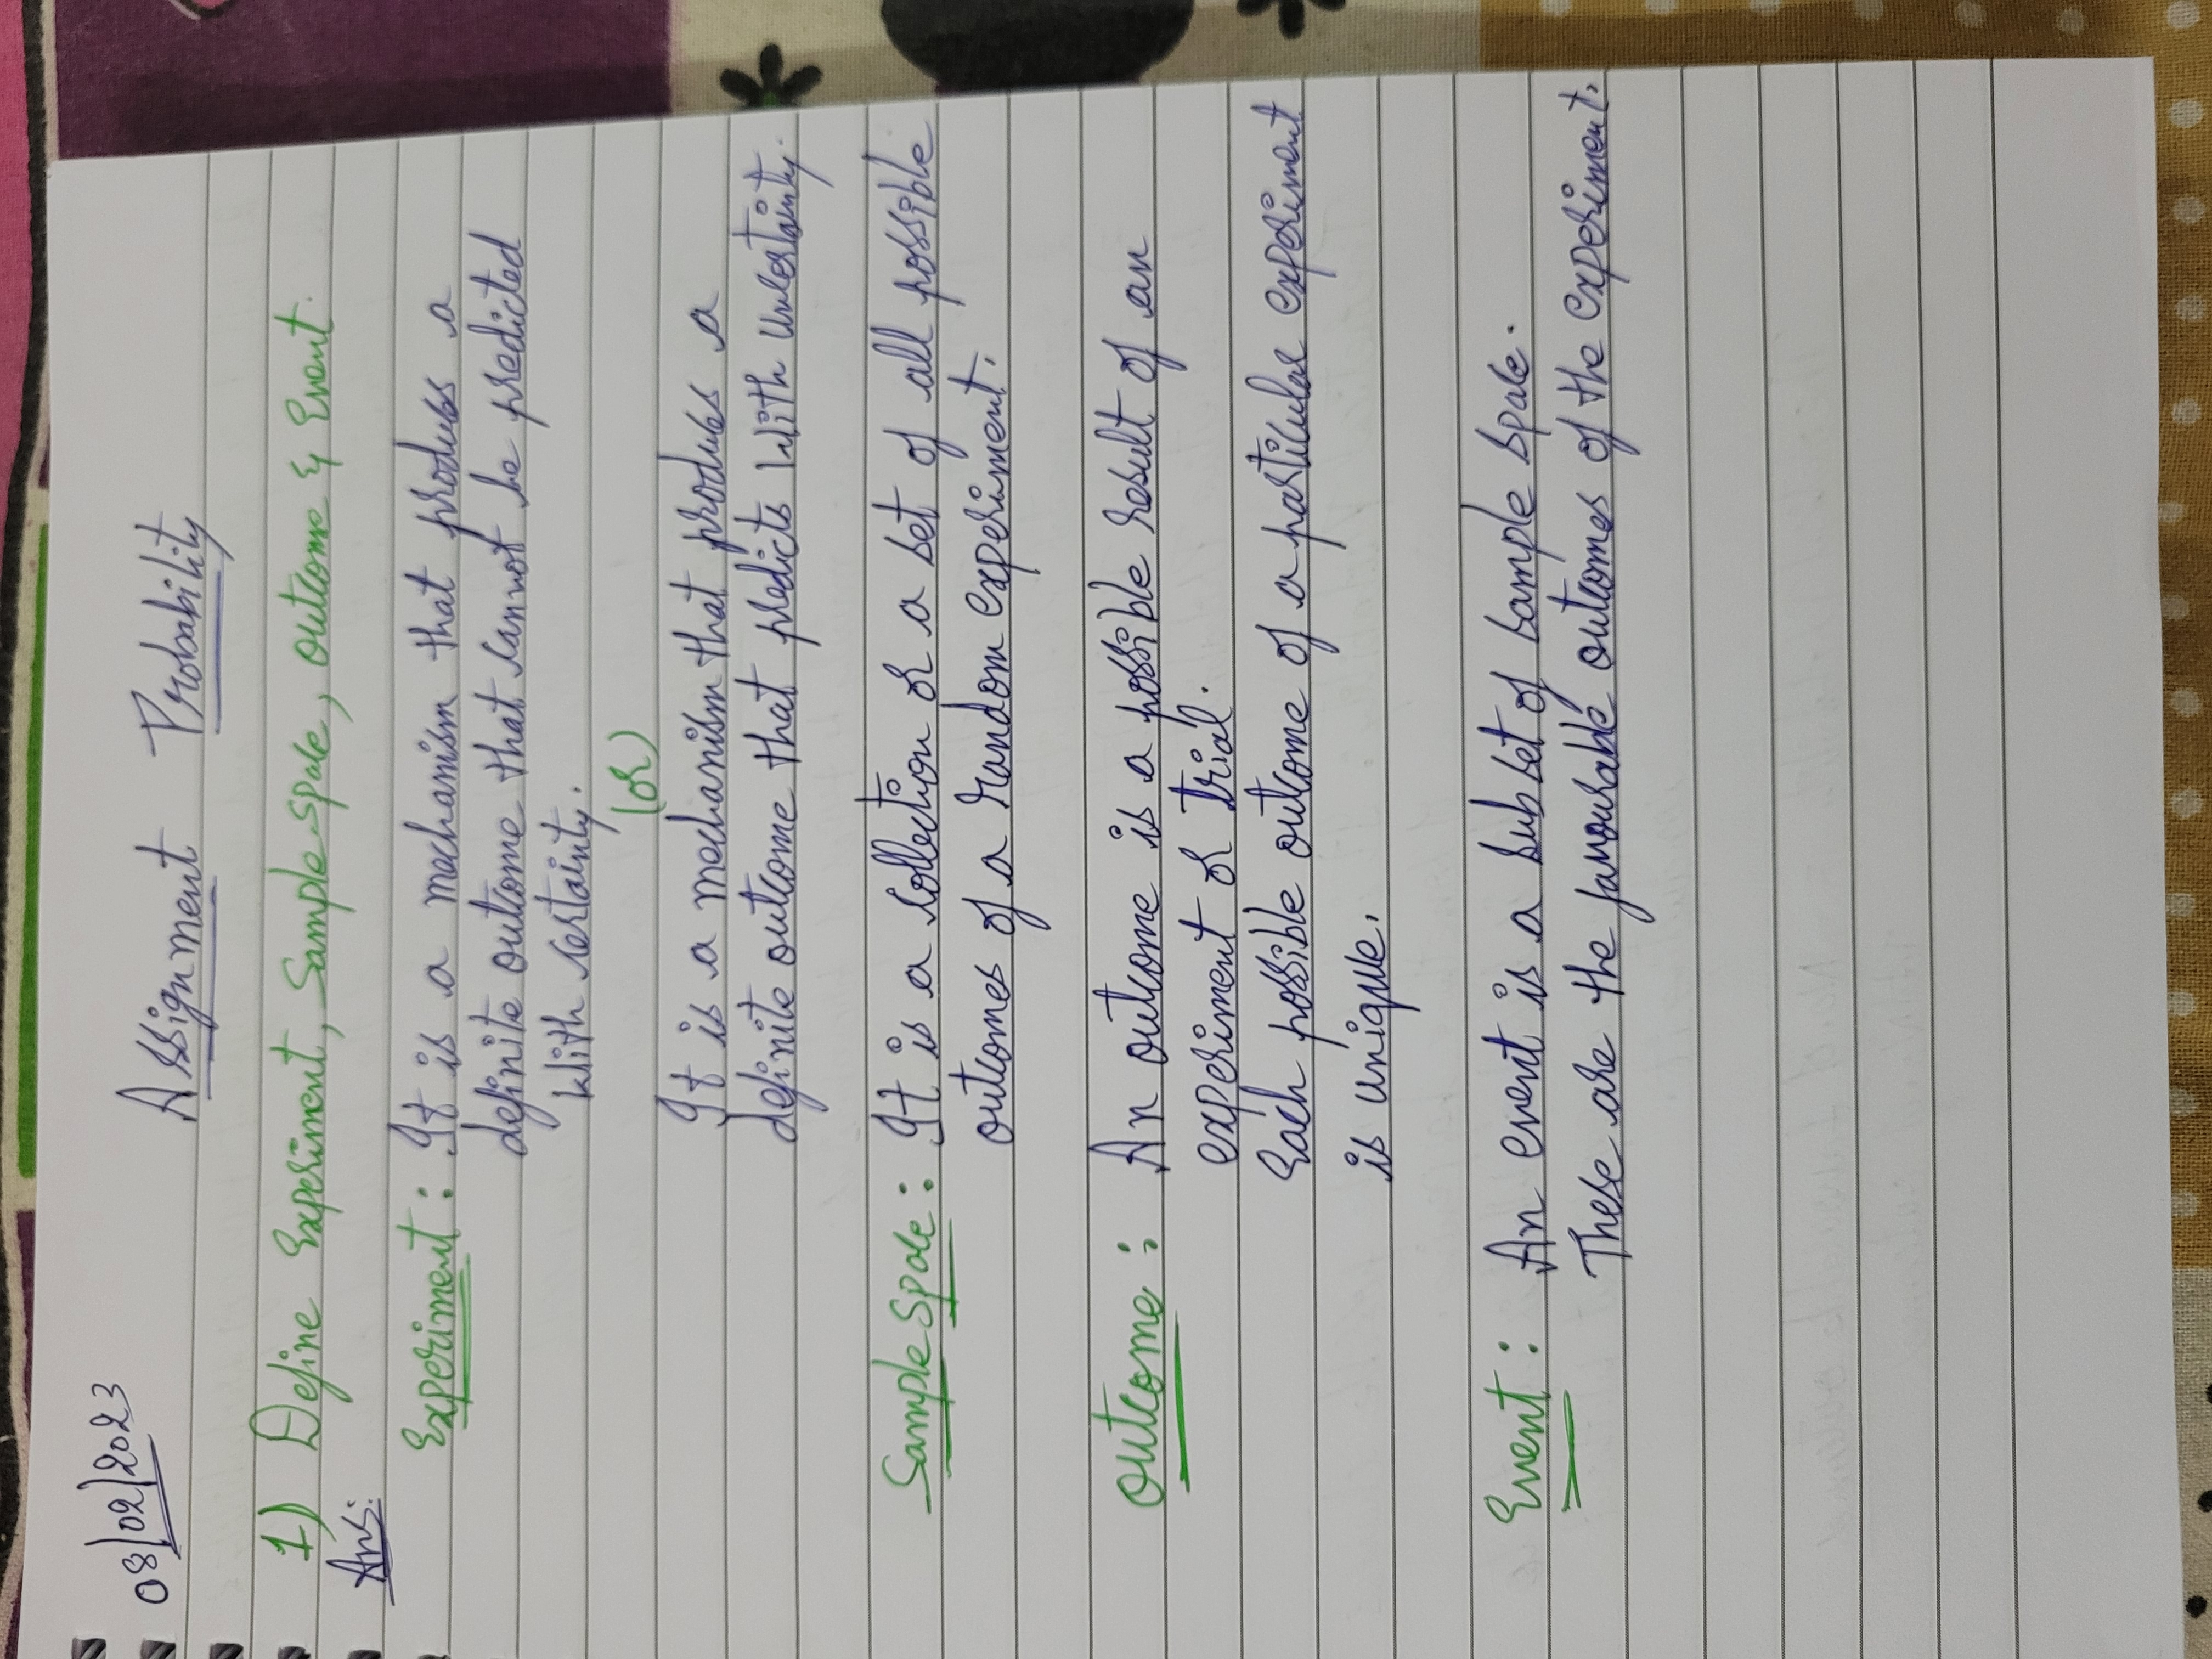 08/02/2023
Assignment Probability
1) Define Experiment, Sample space, outcome & Event.
Ans:
Experiment: It is a mechanism that produces a
definite outcome that cannot be predicted
with certainty.
(or)
It is a mechanism that produces a
definite outcome that predicts with uncertainty.
Sample space: It is a collection or a set of all possible
outcomes of a random experiment.
outcome: An outcome is a possible result of an
experiment or trial.
Each possible outcome of a particular experiment
is unique.
Event: An event is a subset of sample space.
These are the favourable outcomes of the experiment.